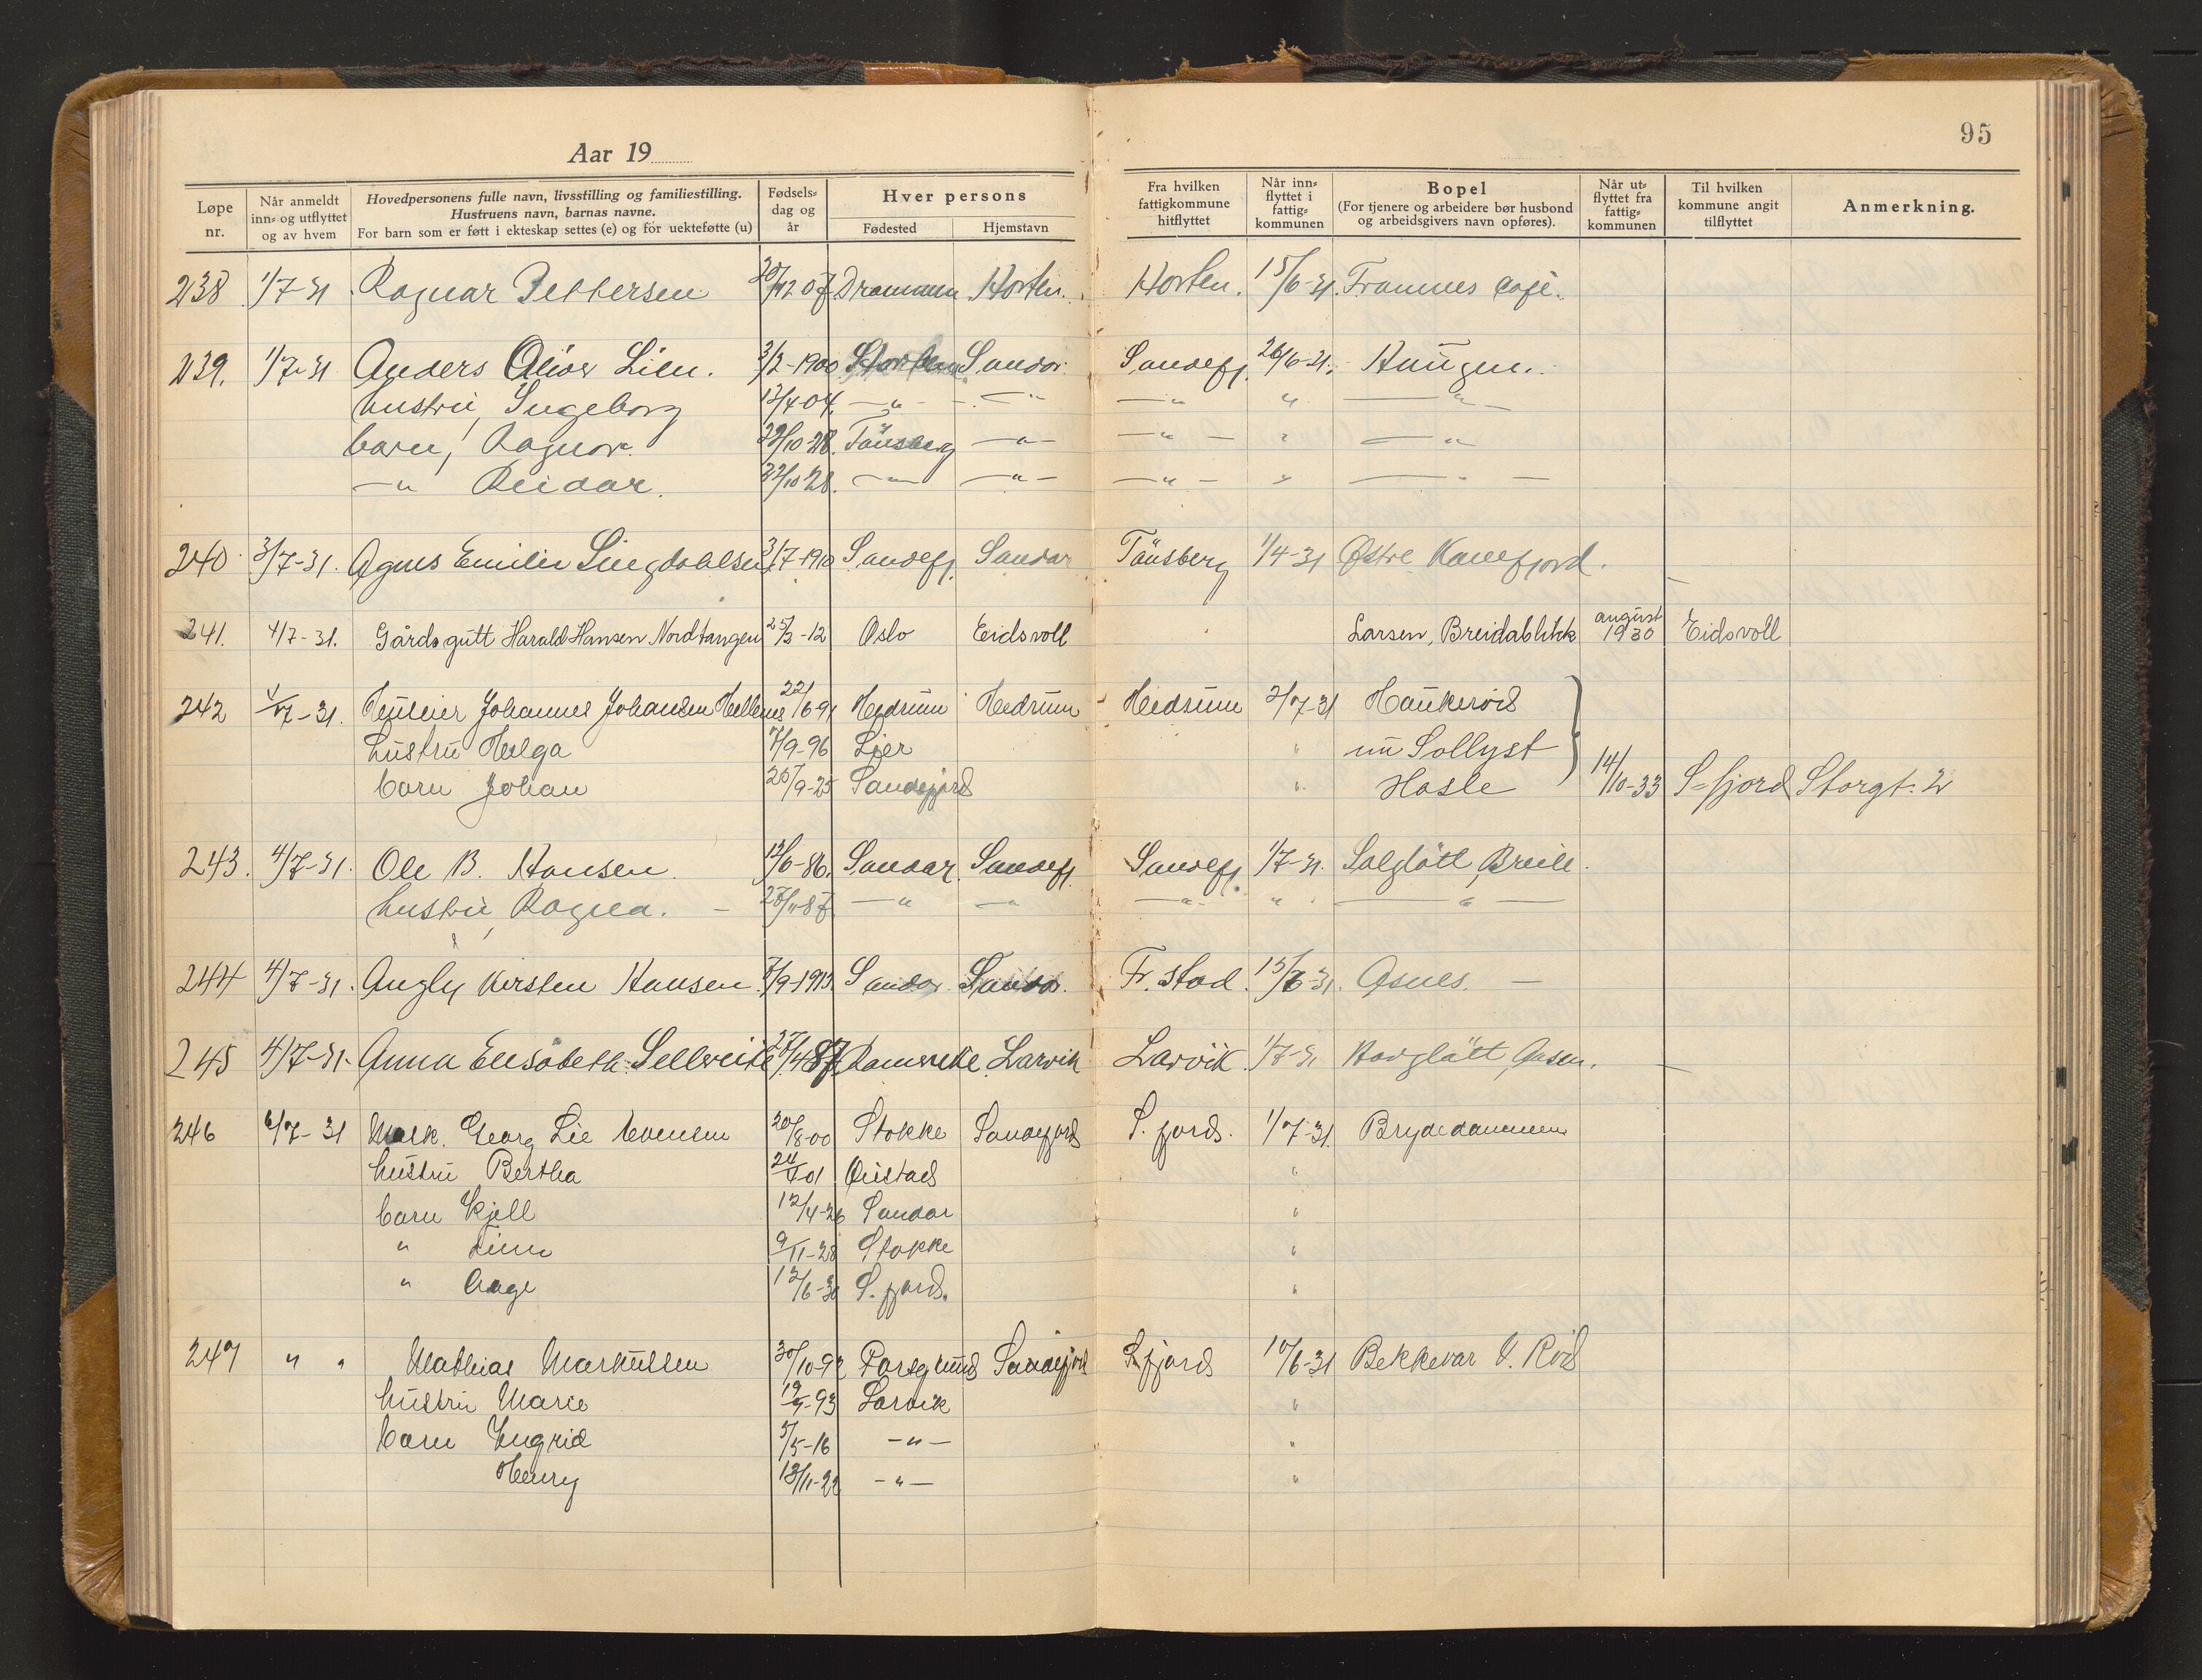 95
Aar 19
Løpe nr. | Når anmeldt inn- og utflyttet og av hvem | Hovedpersonens fulle navn, livsstilling og familiestilling. Hustruens navn, barnas navne. For barn som er født i ekteskap settes (e) og for uekteføtte (u) | Fødselsdag og år | Hver persons Fødested | Hjemstavn | Fra hvilken fattigkommune hitflyttet | Når innflyttet i fattigkommunen | Bopel (For tjenere og arbeidere bør husbond og arbeidsgivers navn opføres). | Når utflyttet fra fattigkommunen | Til hvilken kommune angit tilflyttet | Anmerkning.
238 1/7-31 Ragnar Pettersen 12 07 Drammen Horten. Horten. 15/6-31. Framnes Cafe.
239. 1/7-31 Anders Oliver Lien. 3/2-1900 Sandar. Sandefj. 26/6-31. Haugen.
hustru, Ingeborg 13/4-04. —"— —"— —"— " —"—
barn, Ragnar. 22/10-28. Tønsberg —"— —"— " —"—
—" Reidar. 22/10 28. —"— —"— —"— " —"—
240. 3/7-31. Agnes Emilie Lingdahlsen 3/7-1910 Sandefj. Sandar Tønsberg 1/4-31 Østre Kamfjord.
241. 4/7-31. Gårdsgutt Harald Hansen Nordtangen 25/3-12 Oslo Eidsvoll Larsen, Breidablikk august 1930 Eidsvoll
242 4/7-31. Johannes Johansen 22/6-91 Hedrum Hedrum Hedrum 2/7-31 Haukerød
hustru Helga 7/9-96 Lier " nu Sollyst
barn Johan 25/9-25 Sandefjord " Hasle 14/10-33 S-fjord Storgt. 2
243. 4/7-31. Ole B. Hansen. 13/6-86. Sandar. Sandefj. Sandefj. 1/7-31. Solgløtt, Breili.
hustru, Ragna. —"— —"— —"— " —"—
244 4/7-31. Angly Kirsten Hansen. 7/9-1913. Sandar Sandar. Fr.stad. 15/6-31. Asnes. —
245 4/7-31. Anna Elisabeth 27/4 87. Larvik Larvik. 1/7-31 Havgløtt, Åsen.
246 6/7-31 Mask. Georg Lie Evensen 20/8-00 Stokke Sandefjord S.fjord. 1/7-31. Brydedammen
hustru Bertha Øristad "
barn Kjell 12/4-26 Sandar "
" 9/11-28 Stokke "
" Aage 12/6-30 S.fjord. "
247 " " Mathias Markussen 30/10-92 Porsgrund Sandefjord S.fjord 10/6-31 Bekkevar V. Rød
hustru Marie Larvik "
barn Ingrid 5/5-16 —"— "
Henry 13/11-22 —"— "